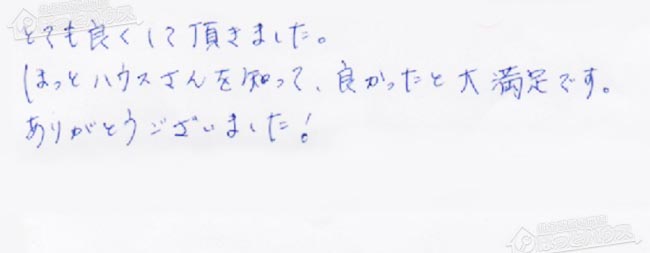 とても良くして頂きました。
ほっとハウスさんを知って、良かったと大満足です。
ありがとうございました!
ほっとハウス